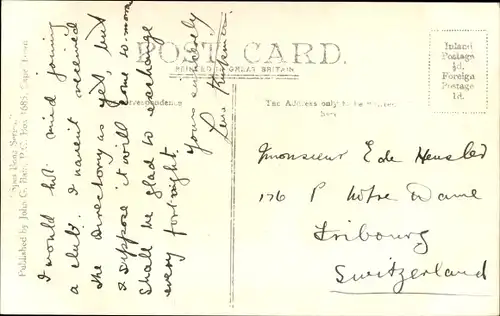 POST CARD.
PRINTED IN GREAT BRITAIN
Correspondence
The Address only to be Written
here
Inland
Postage
½d.
Foreign
Postage
1d.
Published by John G. Bain, P.O. Box 1683, Cape Town
I would not mind joining
a club. I haven't received
the Directory as yet, but
I suppose it will come so more
Shall be glad to exchange
every fortnight.
Yours sincerely
Monsieur E de Hensler
176 P Notre Dame
Fribourg
Switzerland